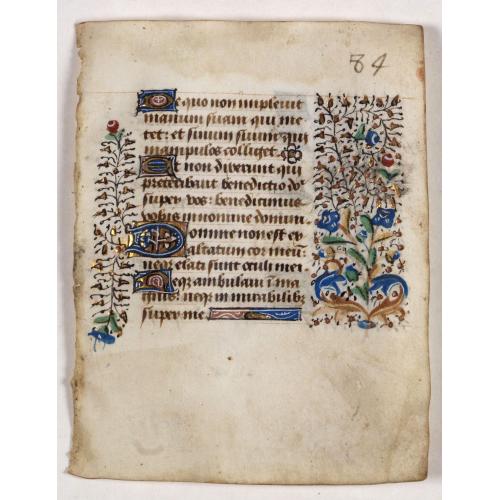 84
De quo non impleuit
manum suam qui me
tet: et sinum suum qui
manipulos colliget.
Et non dixerunt qui
preteribant benedictio dn̄i
super vos: benediximus
vobis in nomine domini.
Domine non est ex
altatum cor meū
neq; elati sunt oculi mei.
Neq; ambulaui ī ma
gnis: neq; in mirabilib;
super me.